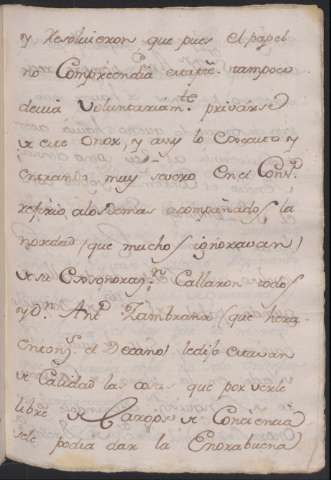 y Resolvieron que pues el papel
no Compreendia esta pte. tampoco
devia Voluntariamte. privarse
de este onor, y assy lo executo y
entrando muy severo en el Convto.
refirio, a los Demas acompañados, la
novedad (que muchos ignoravan)
de su Exsonorazn. Callaron todos
y Dn. Anto. Zambrana (que hera
entonzs. el Decano) le dijo estavan
de Calidad las cosas que por verse
libre de Cargos de Conciencia
se le podia dar la Enorabuena